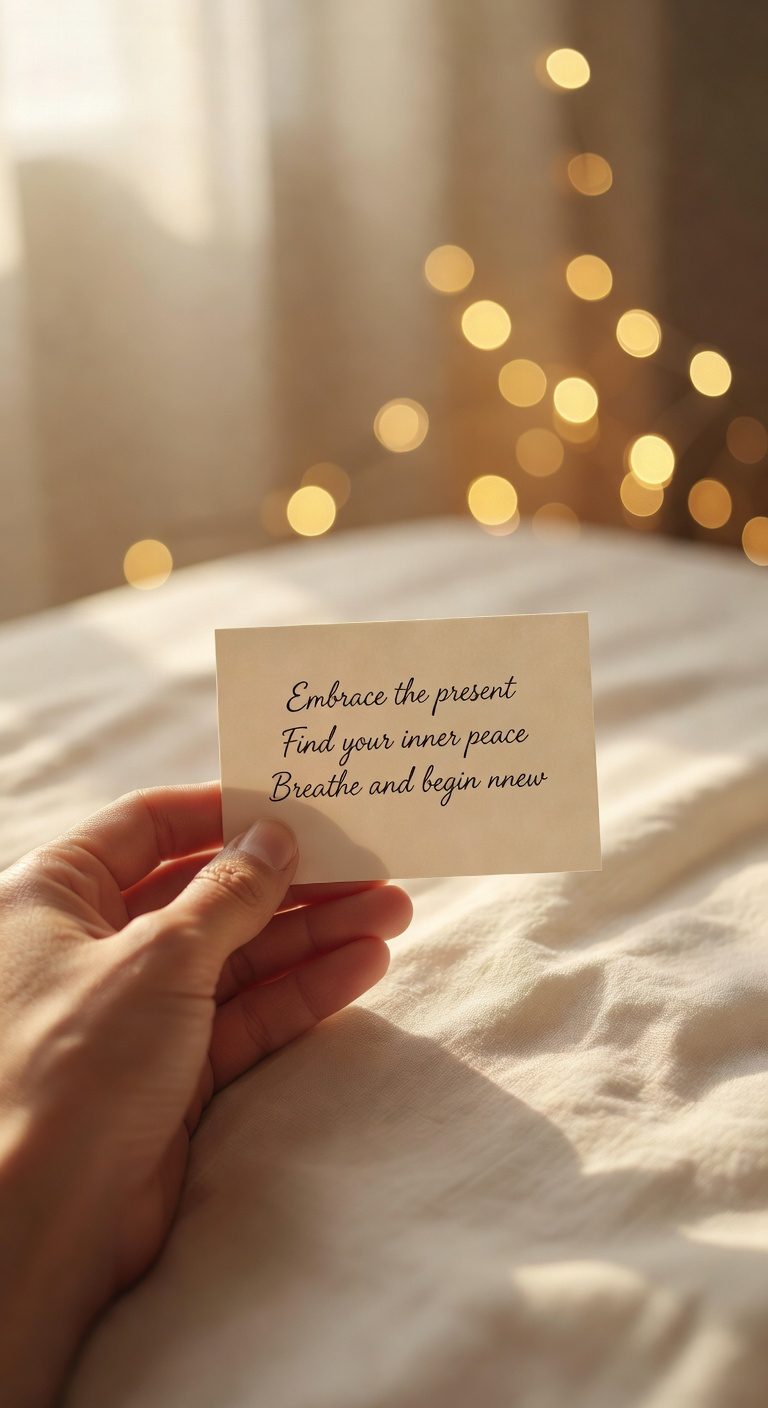 Embrace the present
Find your inner peace
Breathe and begin nnew